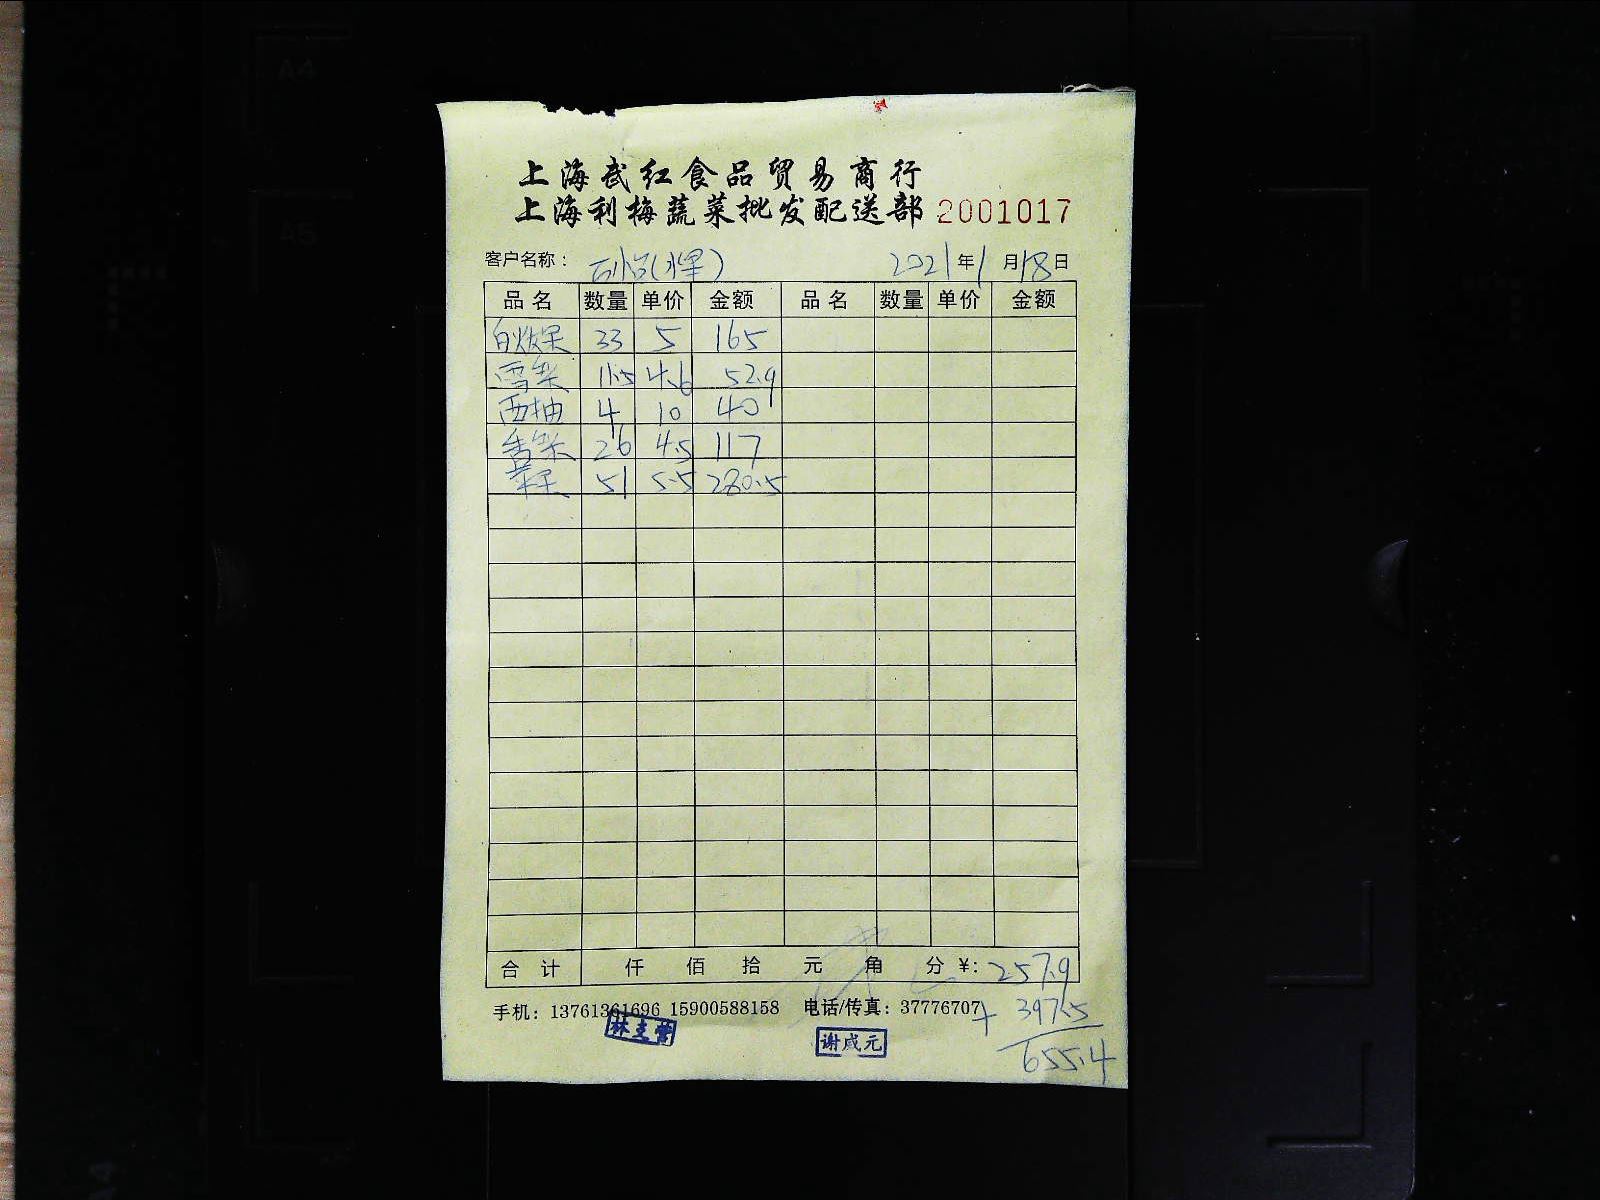 A4
A5
上海武红食品贸易商行
上海利梅蔬菜批发配送部 2001017
客户名称： 2021年1月18日
品名 数量 单价 金额 品名 数量 单价 金额
33 5 165
雪梨 11.5 4.6 52.9
西柚 4 10 40
香梨 26 4.5 117
苹果 51 5.5 280.5
合计 仟 佰 拾 元 角 分 ¥: 257.9
手机：13761361696 15900588158 电话/传真：37776707 + 397.5
谢成元
655.4